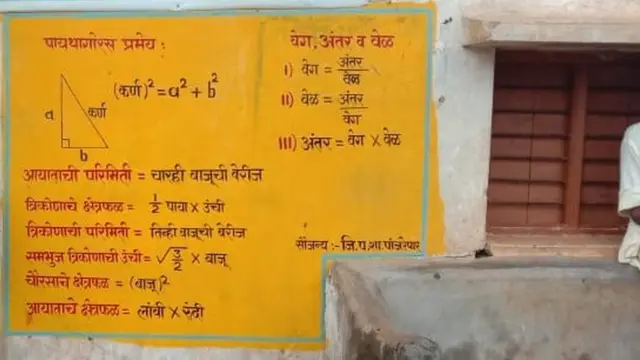 पायथागोरस प्रमेय :
(कर्ण)² = a² + b²
a
कर्ण
b
आयाताची परिमिती = चारही बाजूची बेरीज
त्रिकोणाचे क्षेत्रफळ = 1/2 पाया × उंची
त्रिकोणाची परिमिती = तिन्ही बाजूची बेरीज
समभुज त्रिकोणाची उंची = √3/2 × बाजू
चौरसाचे क्षेत्रफळ = (बाजू)²
आयाताचे क्षेत्रफळ = लांबी × रुंदी
वेग, अंतर व वेळ
I) वेग = अंतर/वेळ
II) वेळ = अंतर/वेग
III) अंतर = वेग × वेळ
सौजन्य :- जि.प.शा.